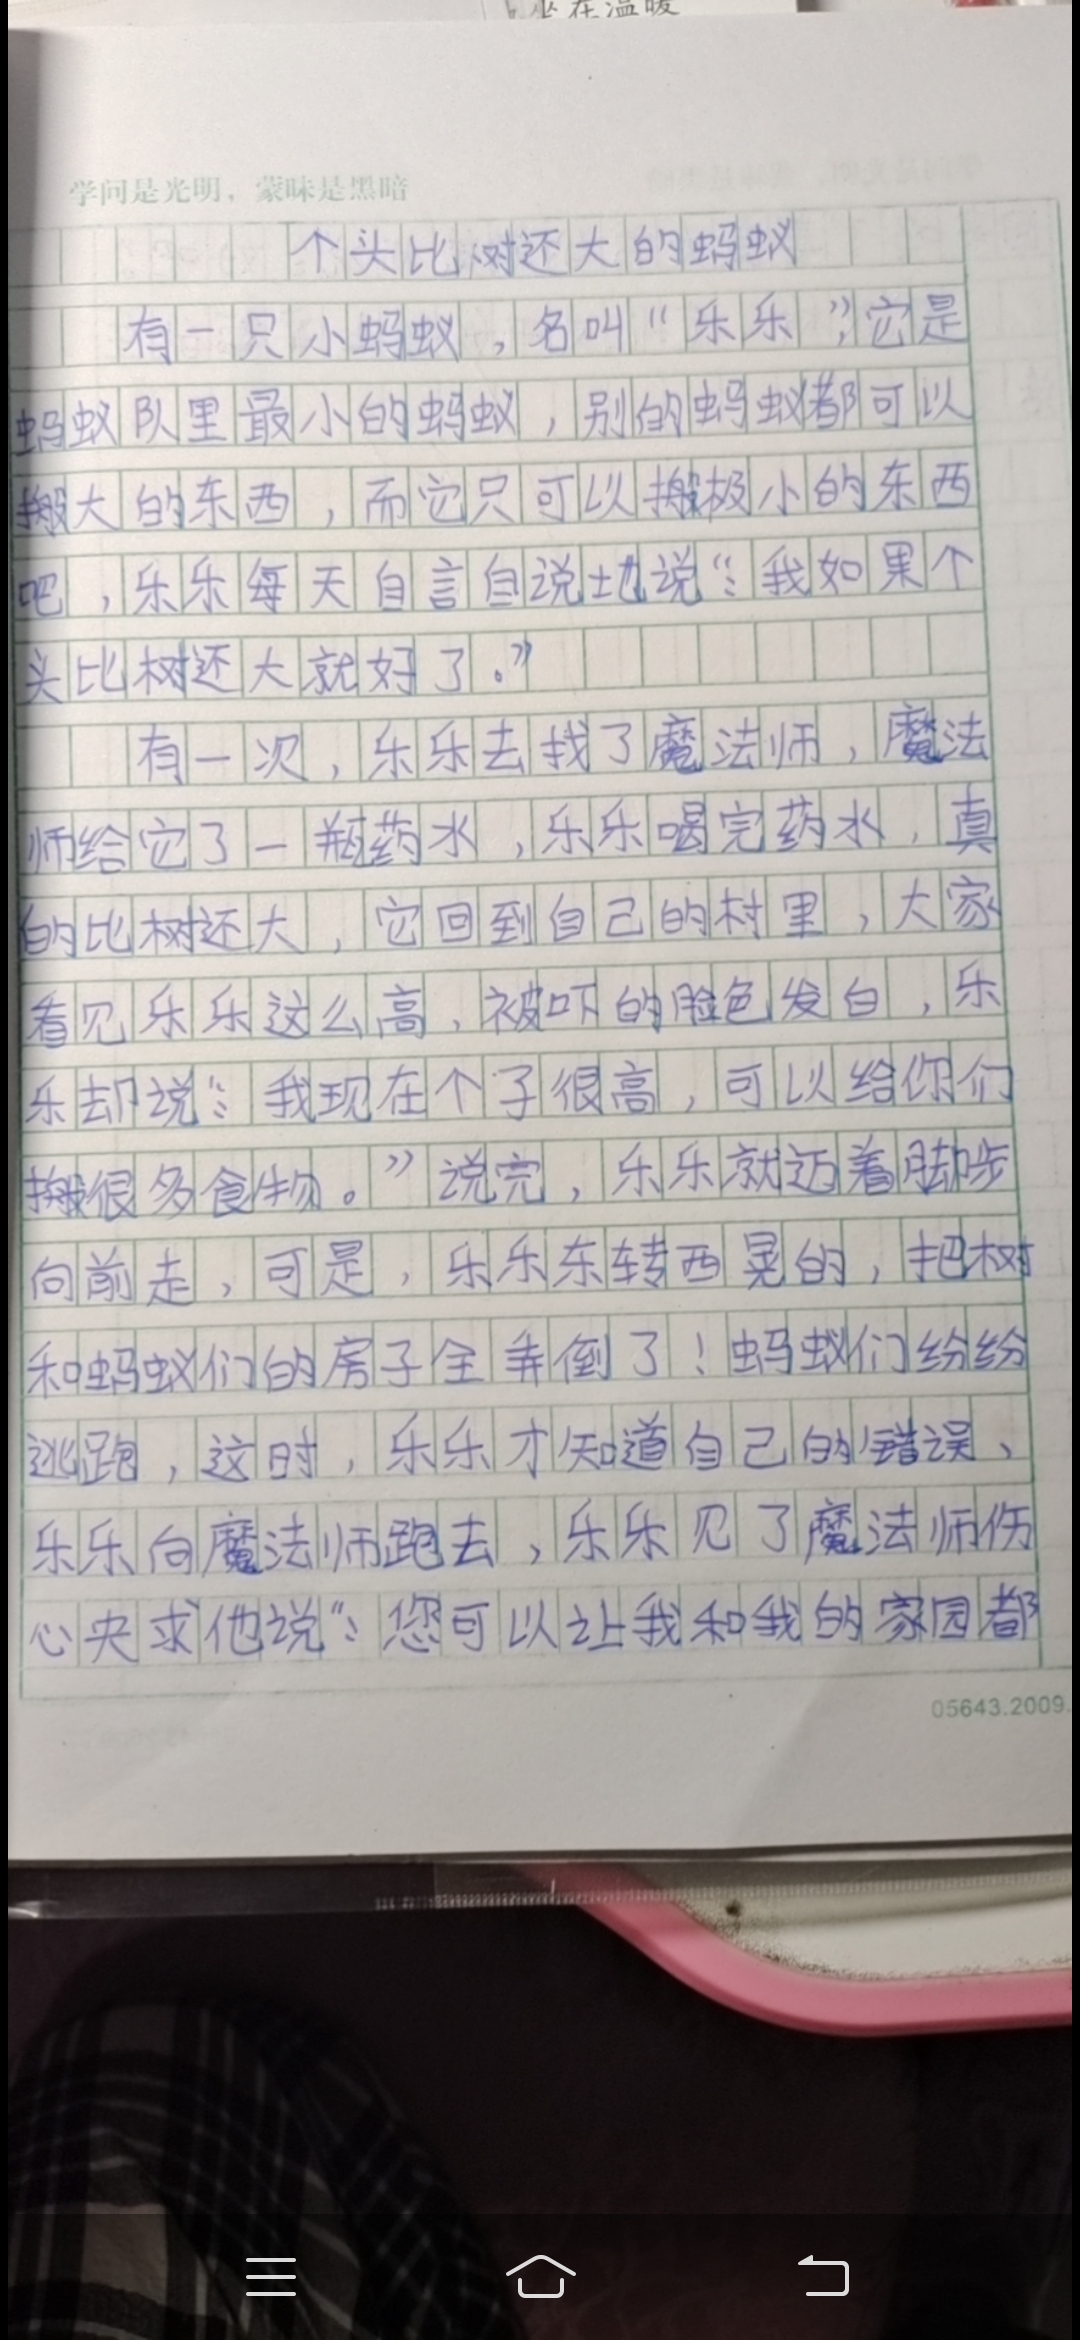 坐在温暖
学问是光明，蒙昧是黑暗
个头比树还大的蚂蚁
有一只小蚂蚁，名叫“乐乐”，它是
蚂蚁队里最小的蚂蚁，别的蚂蚁都可以
搬大的东西，而它只可以搬极小的东西
吧，乐乐每天自言自说地说“：我如果个
头比树还大就好了。”
有一次，乐乐去找了魔法师，魔法
师给它了一瓶药水，乐乐喝完药水，真
的比树还大，它回到自己的村里，大家
看见乐乐这么高，被吓的脸色发白，乐
乐却说“：我现在个子很高，可以给你们
搬很多食物。”说完，乐乐就迈着脚步
向前走，可是，乐乐东转西晃的，把树
和蚂蚁们的房子全弄倒了！蚂蚁们纷纷
逃跑，这时，乐乐才知道自己的错误、
乐乐向魔法师跑去，乐乐见了魔法师伤
心央求他说“：您可以让我和我的家园都
05643.2009.